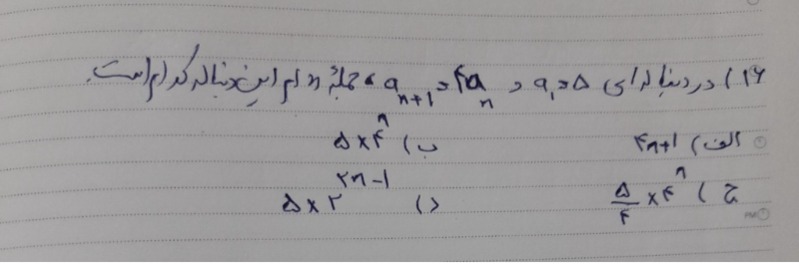 ۱۶) در دنباله‌ای a₁=۵ و aₙ₊₁=۴aₙ، جملهٔ n ام این دنباله کدام است.
الف) ۴n+۱ ب) ۵×۴ⁿ
ج) ۵/۴ ×۴ⁿ د) ۵×۲²ⁿ⁻¹